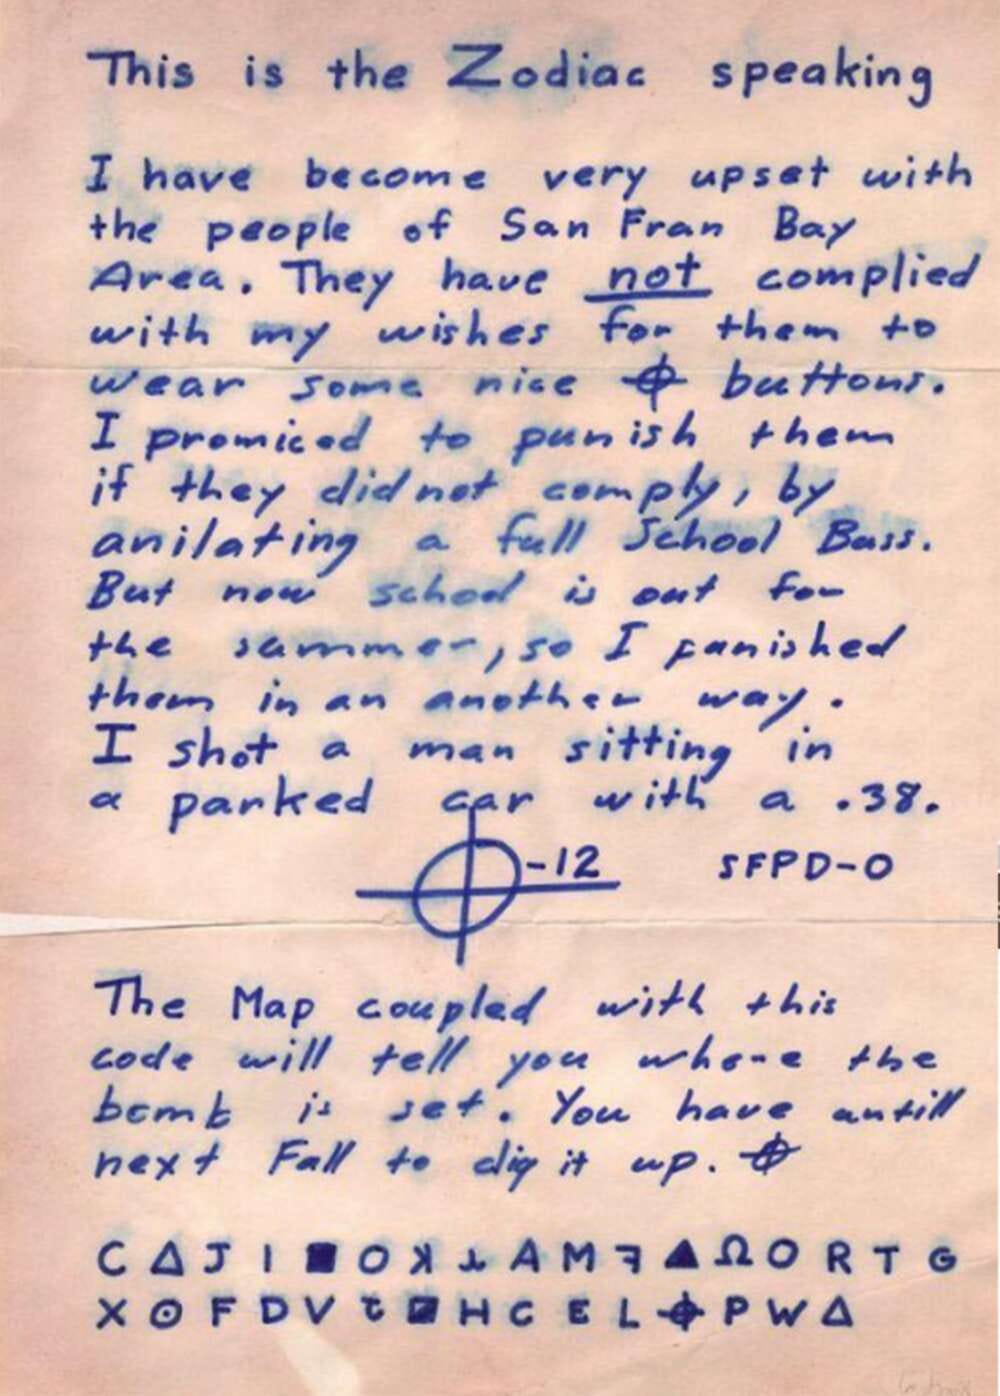 This is the Zodiac speaking
I have become very upset with
the people of San Fran Bay
Area. They have not complied
with my wishes for them to
wear some nice ⌖ buttons.
I promiced to punish them
if they did not comply, by
anilating a full School Buss.
But now school is out for
the summer, so I punished
them in an another way.
I shot a man sitting in
a parked car with a .38.
⌖-12 SFPD-0
The Map coupled with this
code will tell you where the
bomb is set. You have untill
next Fall to dig it up. ⌖
C Δ J I ■ O ꓘ ⅄ A M ꟻ ▲ Ω O R T G
X ⊙ F D V ձ ◪ H C E L ⌖ P W Δ